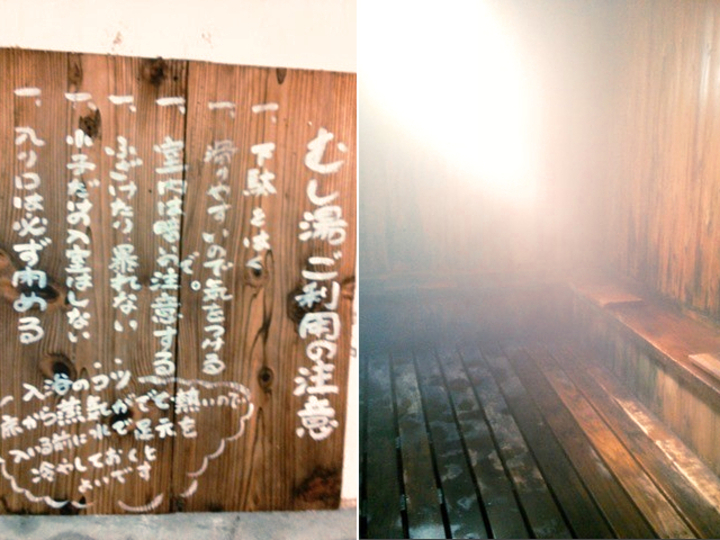 むし湯ご利用の注意
一、下駄をはく
一、滑りやすいので気をつける
一、室内は暗いので注意する。
一、ふざけたり暴れない
一、小子だけの入室はしない
一、入り口は必ず閉める
入浴のコツ
床から蒸気がでて熱いので
入いる前に水で足元を
冷やしておくと
よいです